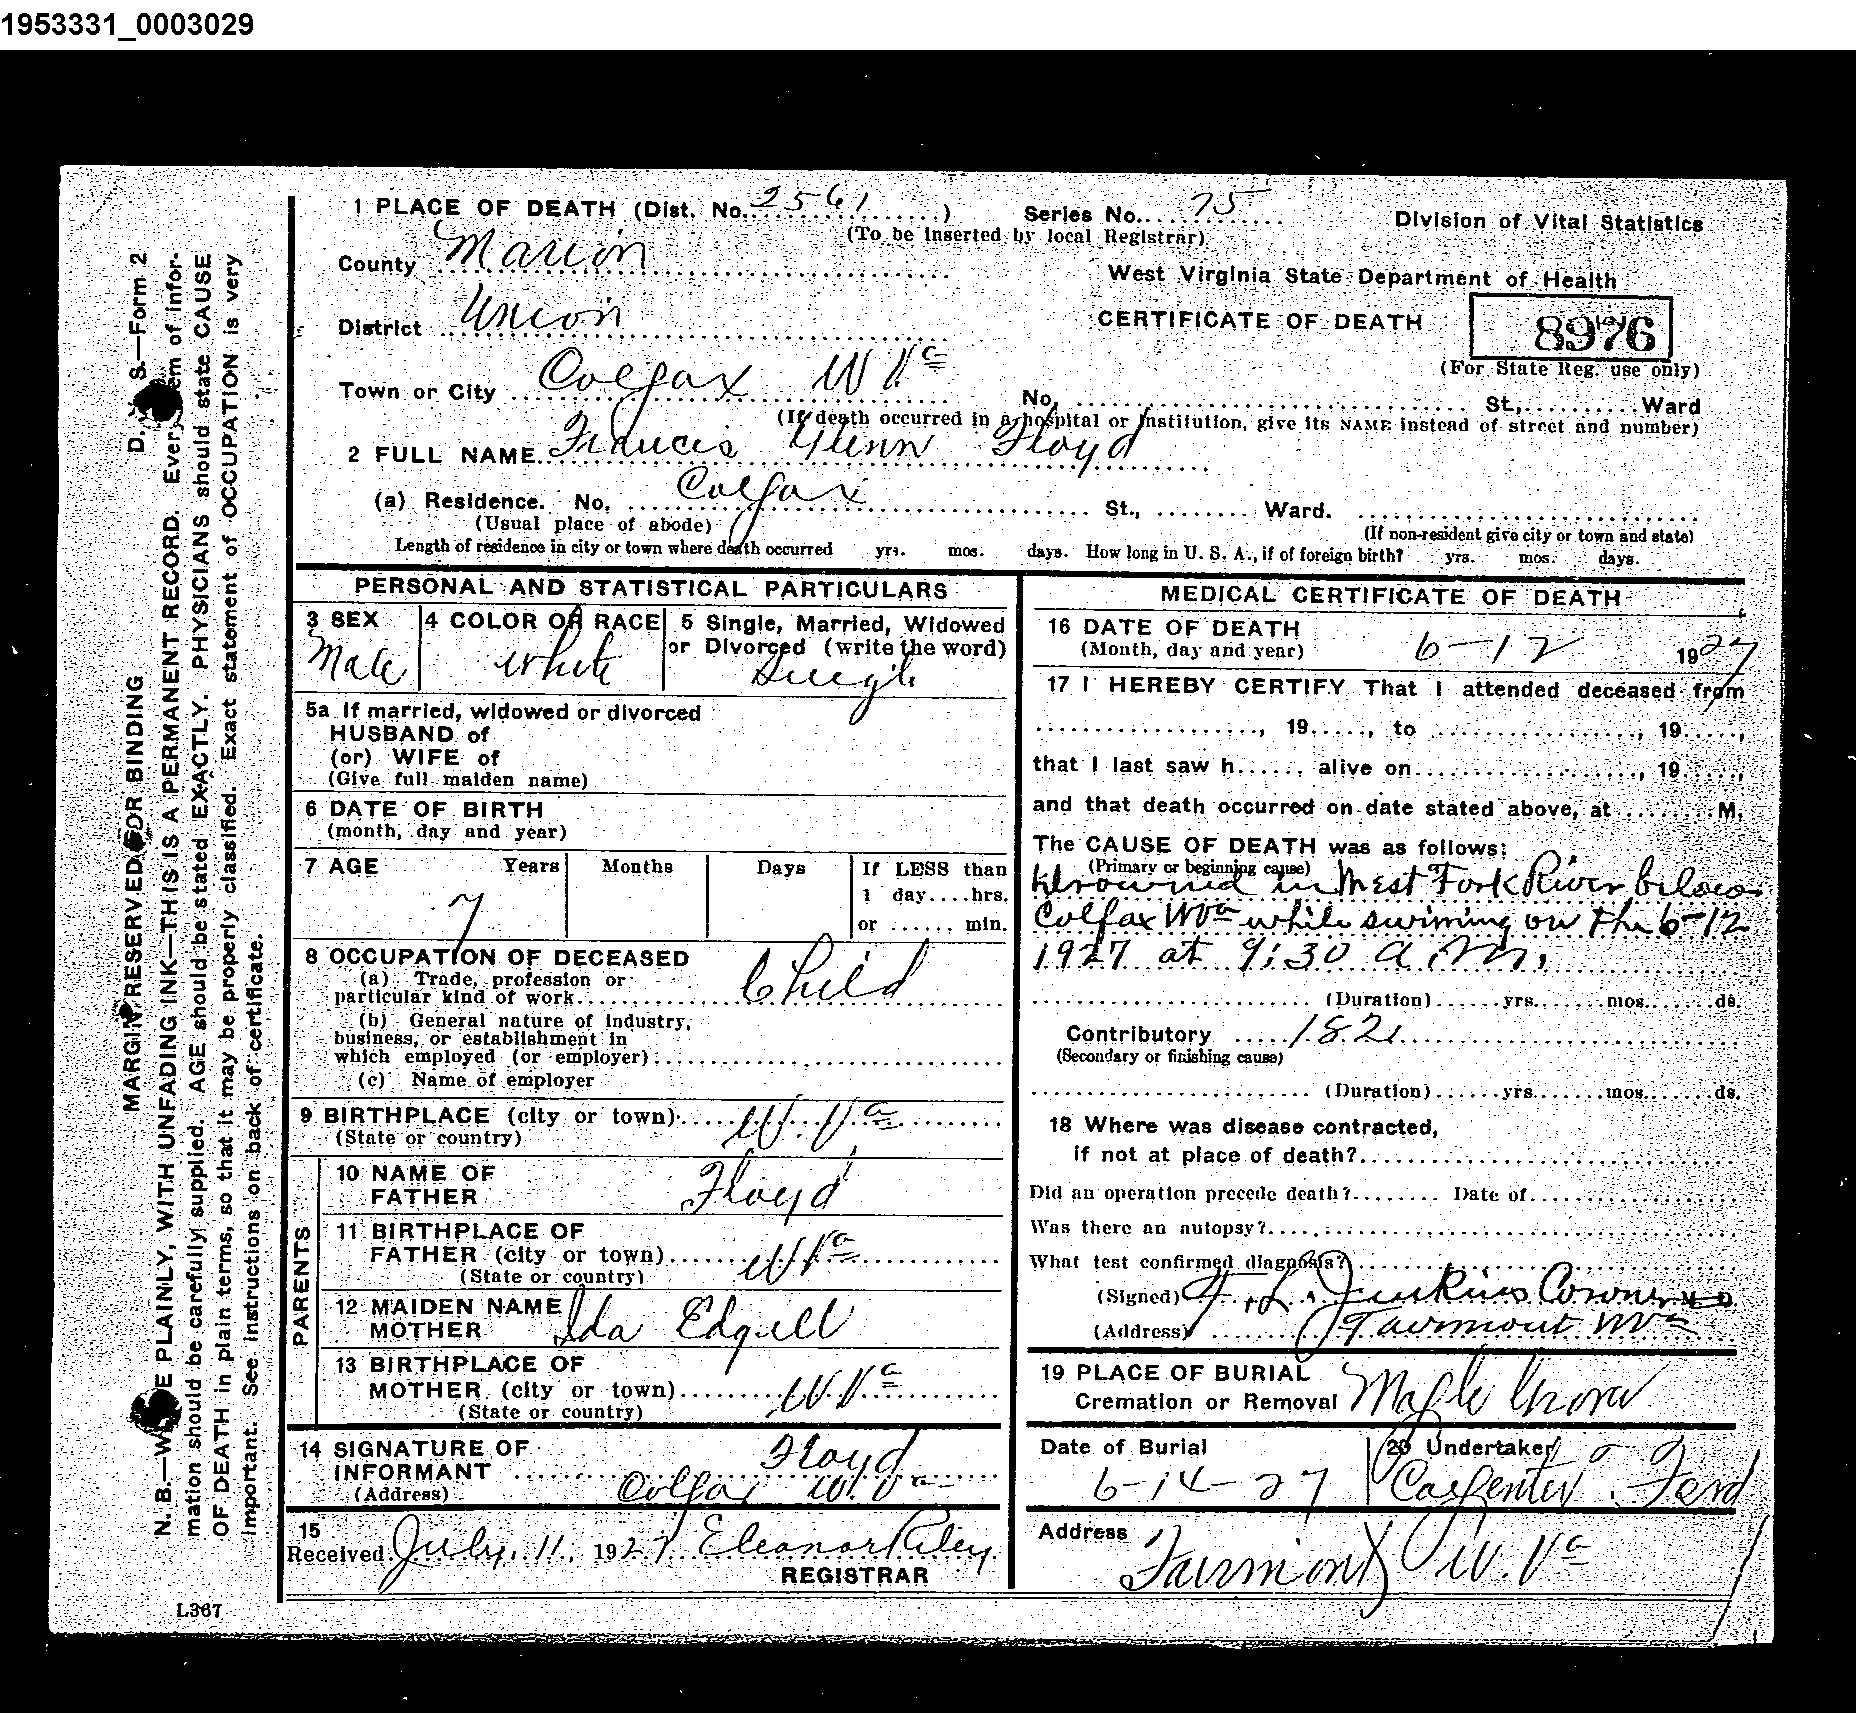 1953331_0003029
1 PLACE OF DEATH (Dist. No. 2561) Series No. 75 Division of Vital Statistics
(To be inserted by local Registrar)
County Marion
West Virginia State Department of Health
District Union
CERTIFICATE OF DEATH 8976
(For State Reg. use only)
Town or City Colfax W Va
No. St., Ward
(If death occurred in a hospital or institution, give its NAME instead of street and number)
2 FULL NAME Francis Glenn Floyd
(a) Residence. No. Colfax St., Ward.
(Usual place of abode) (If non-resident give city or town and state)
Length of residence in city or town where death occurred yrs. mos. days. How long in U. S. A., if of foreign birth? yrs. mos. days.
PERSONAL AND STATISTICAL PARTICULARS
3 SEX Male
4 COLOR OR RACE white
5 Single, Married, Widowed
or Divorced (write the word)
Single
5a If married, widowed or divorced
HUSBAND of
(or) WIFE of
(Give full maiden name)
6 DATE OF BIRTH
(month, day and year)
7 AGE Years Months Days If LESS than
1 day....hrs.
or ...... min.
7
8 OCCUPATION OF DECEASED
(a) Trade, profession or
particular kind of work Child
(b) General nature of industry,
business, or establishment in
which employed (or employer)
(c) Name of employer
9 BIRTHPLACE (city or town) W. Va
(State or country)
PARENTS
10 NAME OF
FATHER Floyd
11 BIRTHPLACE OF
FATHER (city or town) W Va
(State or country)
12 MAIDEN NAME
MOTHER Ida Edgell
13 BIRTHPLACE OF
MOTHER (city or town) W. Va
(State or country)
14 SIGNATURE OF
INFORMANT Floyd
(Address) Colfax W. Va
15
Received July 11, 1927 Eleanor Riley
REGISTRAR
MEDICAL CERTIFICATE OF DEATH
16 DATE OF DEATH
(Month, day and year) 6-12 1927
17 I HEREBY CERTIFY That I attended deceased from
, 19....., to , 19.....,
that I last saw h...... alive on , 19.....,
and that death occurred on date stated above, at M.
The CAUSE OF DEATH was as follows:
(Primary or beginning cause)
Drowned in West Fork River below
Colfax W Va while swiming on the 6-12
1927 at 9:30 a.m.
(Duration)......yrs.......mos.......ds.
Contributory 182
(Secondary or finishing cause)
(Duration)......yrs.......mos.......ds.
18 Where was disease contracted,
if not at place of death?
Did an operation precede death? Date of
Was there an autopsy?
What test confirmed diagnosis?
(Signed) F. L. Jenkins Coroner M. D.
(Address) Fairmont W Va
19 PLACE OF BURIAL
Cremation or Removal Maple Grove
Date of Burial
6-14-27
20 Undertaker
Carpenter & Ford
Address
Fairmont W. Va
D. S.—Form 2
MARGIN RESERVED FOR BINDING
N. B.—WRITE PLAINLY, WITH UNFADING INK—THIS IS A PERMANENT RECORD. Every item of infor-
mation should be carefully supplied. AGE should be stated EXACTLY. PHYSICIANS should state CAUSE
OF DEATH in plain terms, so that it may be properly classified. Exact statement of OCCUPATION is very
important. See instructions on back of certificate.
L367